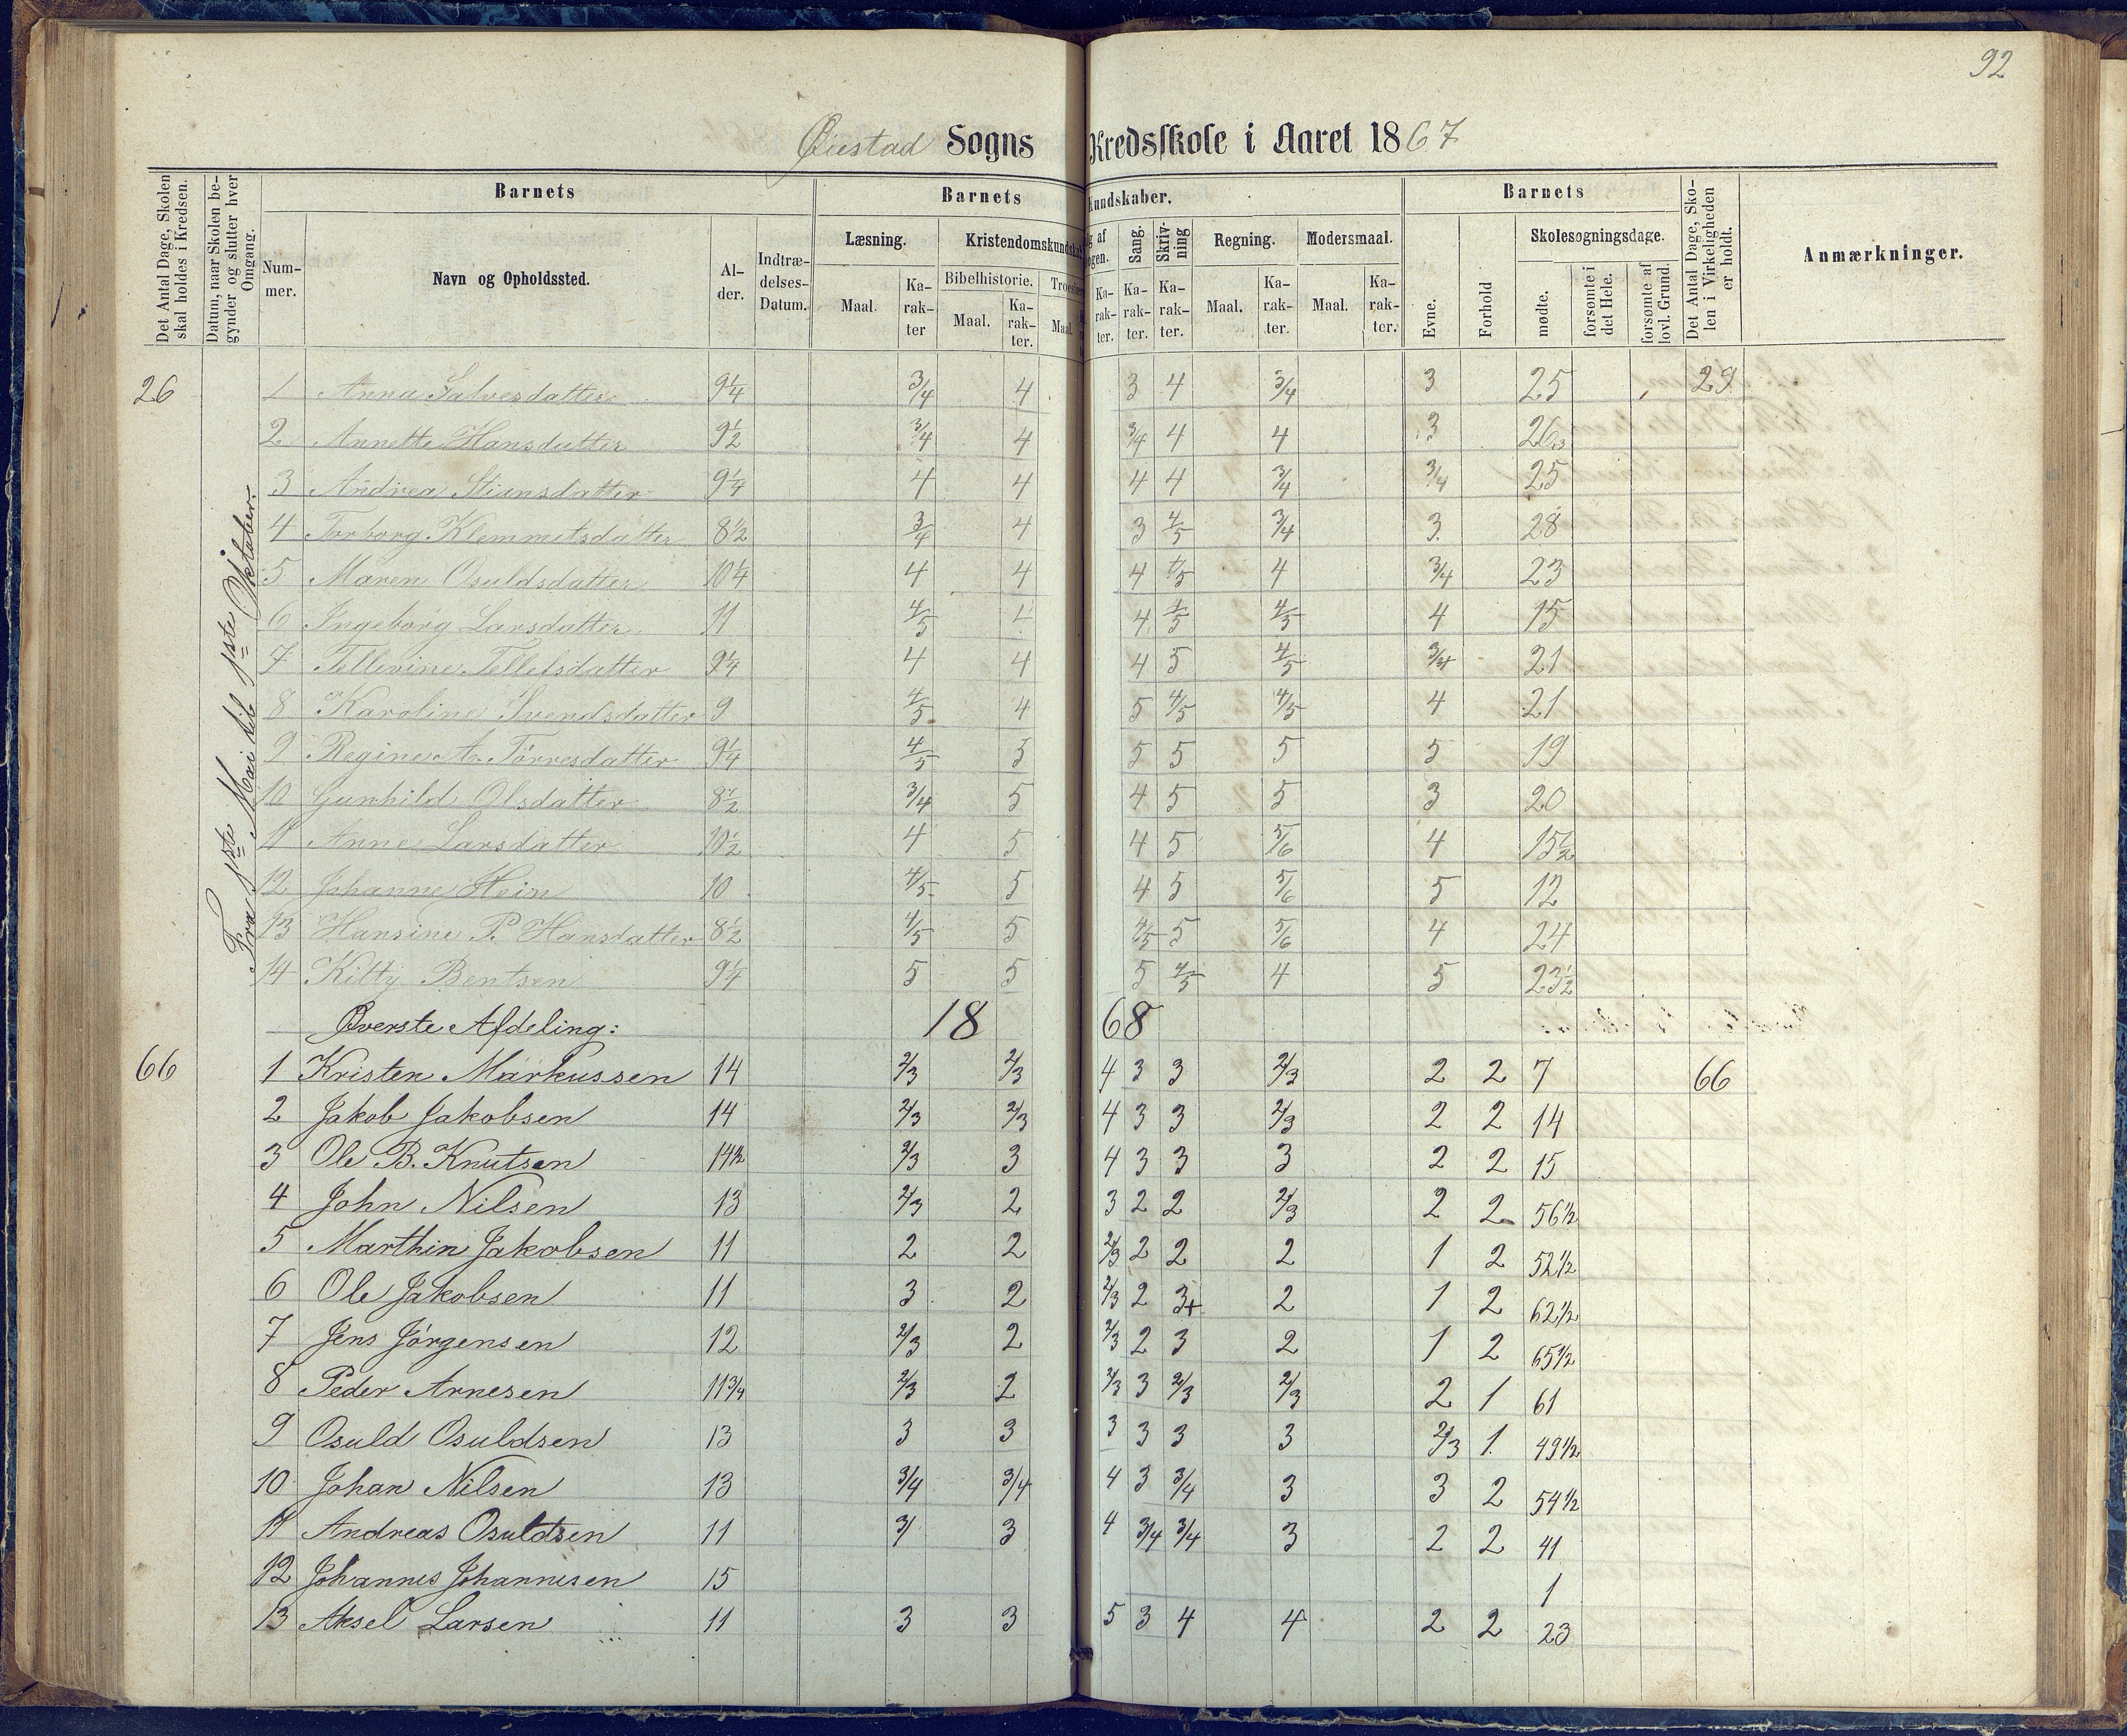 92
Øiestad Sogns Kredsskole i Aaret 1867
Det Antal Dage, Skolen skal holdes i Kredsen.
Datum, naar Skolen begynder og slutter hver Omgang.
Barnets
Nummer.
Navn og Opholdssted.
Alder.
Indtrædelses-Datum.
Barnets Kundskaber.
Læsning.
Maal.
Karakter
Kristendomskundskab
Bibelhistorie.
Maal.
Karakter.
Maal.
Karakter.
Sang.
Karakter.
Skrivning
Karakter.
Regning.
Maal.
Karakter.
Modersmaal.
Maal.
Karakter.
Barnets
Evne.
Forhold
Skolesøgningsdage.
mødte.
forsømte i det Hele.
forsømte af lovl. Grund.
Det Antal Dage, Skolen i Virkeligheden er holdt.
Anmærkninger.
Fra 1ste Mai til 1ste Oktober.
26 1 Anna Salvesdatter 9 1/4 3/4 4 3 4 3/4 3 25 29
2 Annette Hansdatter 9 1/2 3/4 4 3/4 4 4 3 26
3 Andrea Stiansdatter 9 1/4 4 4 4 4 3/4 3/4 25
4 Torborg Klemmetsdatter 8 1/2 3/4 4 3 4/5 3/4 3 28
5 Maren Osuldsdatter 10 1/4 4 4 4 4/5 4 3/4 23
6 Ingeborg Larsdatter 11 4/5 4 4 4/5 4/5 4 15
7 Tellevine Tellefsdatter 9 1/4 4 4 4 5 4/5 3/4 21
8 Karoline Svendsdatter 9 4/5 4 5 4/5 4/5 4 21
9 Regine A. Tórresdatter 9 1/4 4/5 5 5 5 5 5 19
10 Gunhild Olsdatter 8 1/2 3/4 5 4 5 5 3 20
11 Anne Larsdatter 10 1/2 4 5 4 5 5/6 4 15 1/2
12 Johanne Hein 10 4/5 5 4 5 5/6 5 12
13 Hansine P. Hansdatter 8 1/2 4/5 5 4/5 5 5/6 4 24
14 Kitty Bentsen 9 1/4 5 5 5 4/5 4 5 23 1/2
Øverste Afdeling: 1868
66 1 Kristen Markussen 14 2/3 2/3 4 3 3 2/3 2 2 7 66
2 Jakob Jakobsen 14 2/3 2/3 4 3 3 2/3 2 2 14
3 Ole B. Knutsen 14 1/2 2/3 3 4 3 3 3 2 2 15
4 John Nilsen 13 2/3 2 3 2 2 2/3 2 2 56 1/2
5 Marthin Jakobsen 11 2 2 2/3 2 2 2 1 2 52 1/2
6 Ole Jakobsen 11 3 2 2/3 2 3+ 2 1 2 62 1/2
7 Jens Jórgensen 12 2/3 2 2/3 2 3 2 1 2 65 1/2
8 Peder Arnesen 11 3/4 2/3 2 2/3 3 2/3 2/3 2 1 61
9 Osuld Osuldsen 13 3 3 3 3 3 3 2/3 1 49 1/2
10 Johan Nilsen 13 3/4 3/4 4 3 3/4 3 3 2 54 1/2
11 Andreas Osuldsen 11 3/ 3 4 3/4 3/4 3 2 2 41
12 Johannes Johannesen 15 1
13 Aksel Larsen 11 3 3 5 3 4 4 2 2 23